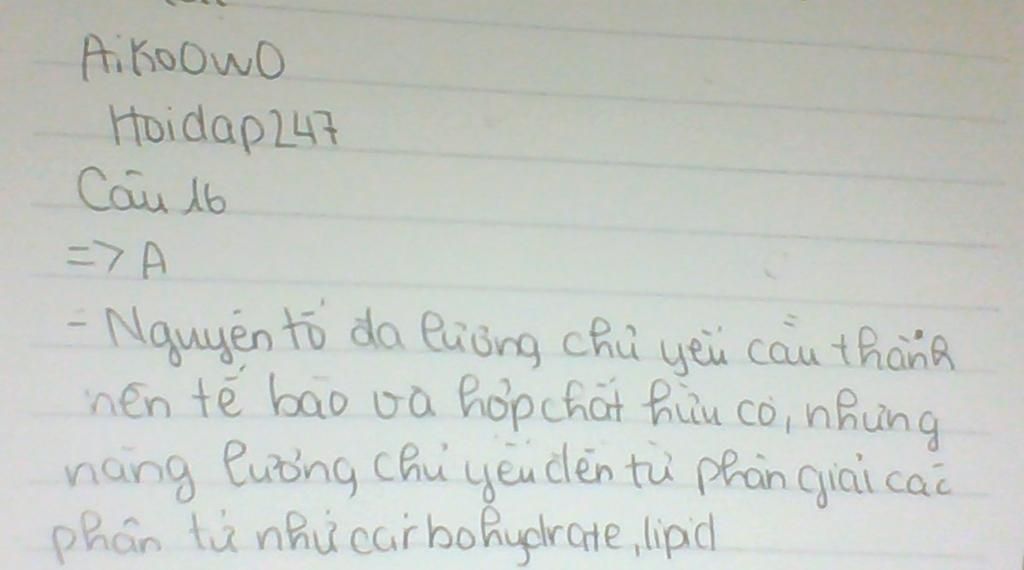 AikoOwO
Hoidap247
Câu 16
=> A
- Nguyên tố đa lượng chủ yếu cấu thành
nên tế bào và hợp chất hữu cơ, nhưng
năng lượng chủ yếu đến từ phân giải các
phân tử như carbohydrate, lipid